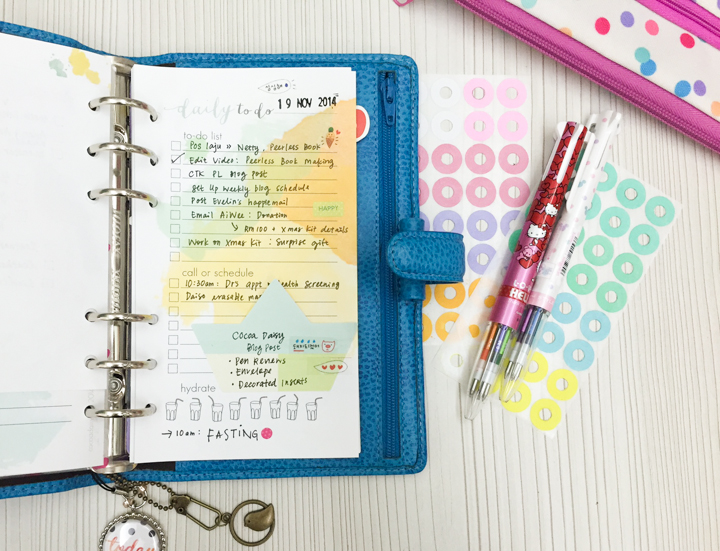 daily to do 19 NOV 2014
to-do list
Pos laju » Netty, Peerless Book
Edit Video: Peerless Book making
CTK PL Blog Post
Set Up weekly blog schedule
Post Evelin's happemail
Email AiWee: Donation
HAPPY
↳ RM100 + Xmas kit details
Work on Xmas Kit: Surprise gift
call or schedule
10:30am: Drs appt Health Screening
Daiso erasable
Cocoa Daisy
Blog Post
• Pen Reviews
• Envelope
• Decorated Inserts
hydrate
→ 10am: FASTING
today
HELLO